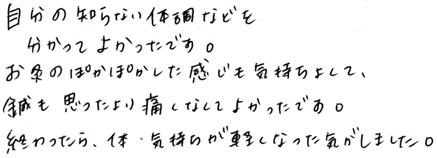 自分の知らない体調などを
分かってよかったです。
お灸のぽかぽかした感じも気持ちよくて、
鍼も思ったより痛くなくてよかったです。
終わったら、体・気持ちが軽くなった気がしました。